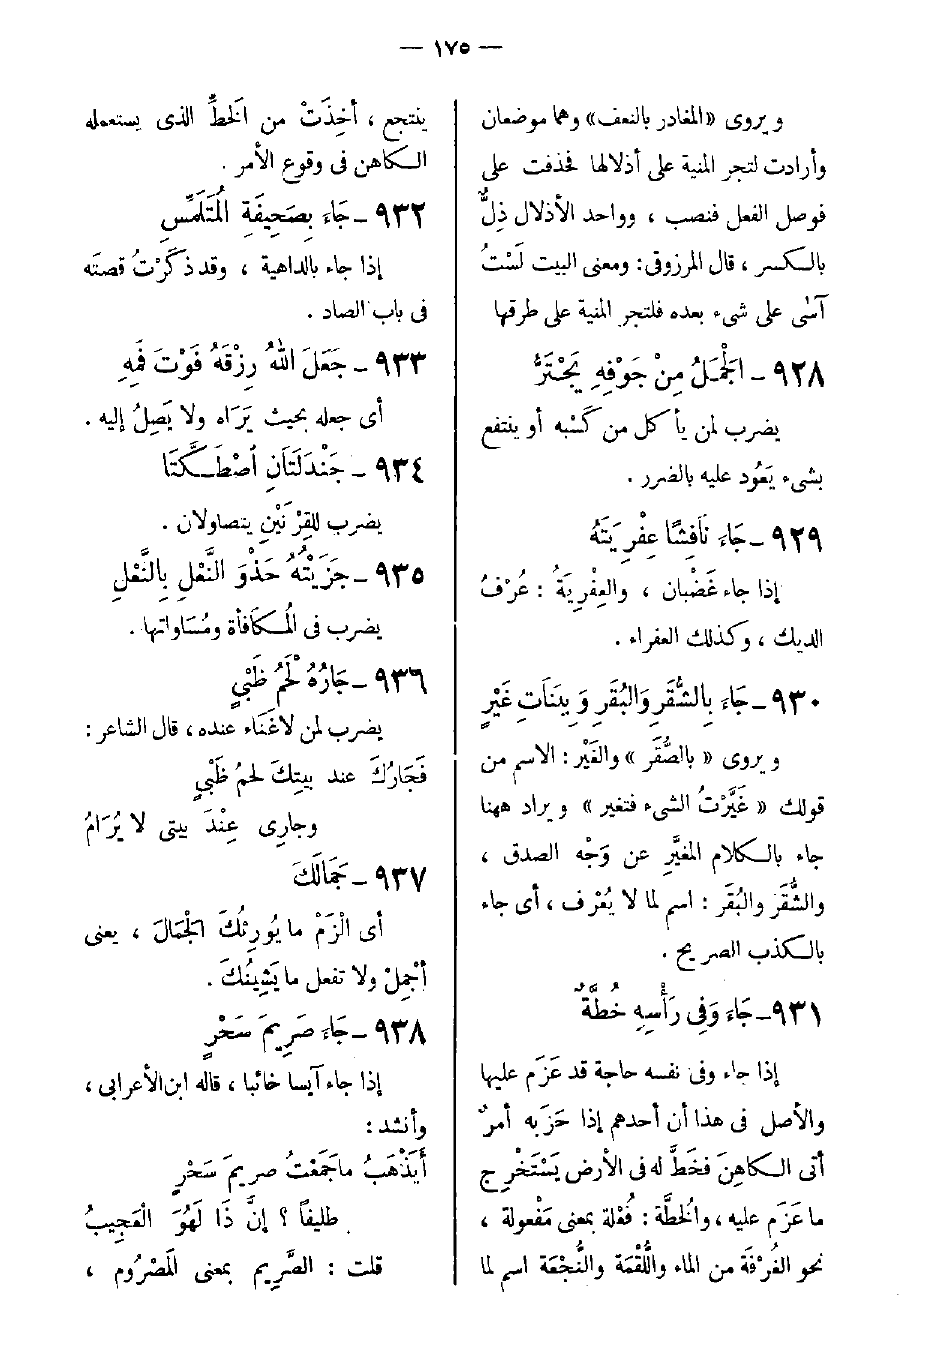 — ١٧٥ —
ويروى «المغادر بالنعف» وهما موضعان
وأرادت لتجر المنية على أذلالها فحذفت على
فوصل الفعل فنصب ، وواحد الأذلال ذِلٌّ
بالكسر ، قال المرزوقى : ومعنى البيت لَسْتُ
آسَى على شىء بعده فلتجر المنية على طرقها
٩٢٨ - الْجَمَلُ مِنْ جَوْفِهِ يَجْتَرُّ
يضرب لمن يأكل من كَسْبه أو ينتفع
بشىء يَعُود عليه بالضرر .
٩٢٩ - جَاءَ نَافِشًا عِفْرِيَتَهُ
إذا جاء غَضْبان ، والعِفْرِيَةُ : عُرْفُ
الديك ، وكذلك العفراء .
٩٣٠ - جَاءَ بِالشُّقَرِ وَالبُقَرِ وَبِبَنَاتِ غَيْرٍ
ويروى « بالصُّقَر » والغَيْر : الاسم من
قولك « غَيَّرْتُ الشىء فتغير » ويراد ههنا
جاء بالكلام المغيَّرِ عن وَجْه الصدق ،
والشُّقَر والبُقَر : اسم لما لا يُعْرف ، أى جاء
بالكذب الصريح .
٩٣١ - جَاءَ وَفِى رَأْسِهِ خُطَّةٌ
إذا جاء وفى نفسه حاجة قد عَزَم عليها
والأصل فى هذا أن أحدهم إذا حَزَبه أمرٌ
أتى الكاهِنَ فخَطَّ له فى الأرض يَسْتَخْرِج
ما عَزَم عليه ، والخطَّة : فُعْلة بمعنى مَفْعولة ،
نحو الغُرْفَة من الماء واللُّقْمَة والنُّجْعَة اسم لما
ينتجع ، أخِذَتْ من الخطِّ الذى يستعمله
الكاهن فى وقوع الأمر .
٩٣٢ - جَاءَ بِصَحِيفَةِ الْمُتَلَمِّسِ
إذا جاء بالداهية ، وقد ذكَرْتُ قصته
فى باب الصاد .
٩٣٣ - جَعَلَ اللهُ رِزْقَهُ فَوْتَ فَمِهِ
أى جعله بحيث يَرَاه ولا يَصِلُ إليه .
٩٣٤ - جَنْدَلَتَانِ اُصْطَكَّتَا
يضرب للقِرْنَيْنِ يتصاولان .
٩٣٥ - جَزَيْتُهُ حَذْوَ النَّعْلِ بِالنَّعْلِ
يضرب فى الْمُكافأة ومُسَاواتها .
٩٣٦ - جَارُهُ لَحْمُ ظَبْىٍ
يضرب لمن لا غَنَاء عنده ، قال الشاعر :
فَجَارُكَ عند بيتِكَ لحمُ ظَبْىٍ
وجارِى عِنْدَ بيتى لا يُرَامُ
٩٣٧ - جَمَالَكَ
أى الْزَمْ ما يُورِثُكَ الْجَمَالَ ، يعنى
أجْمِلْ ولا تفعل ما يَشِينُكَ .
٩٣٨ - جَاءَ صَرِيمَ سَحْرٍ
إذا جاء آيسا خائبا ، قاله ابن الأعرابى ،
وأنشد :
أَيَذْهَبُ ما جَمَعْتُ صريمَ سَحْرٍ
طليفاً ؟ إنَّ ذَا لَهُوَ الْعَجِيبُ
قلت : الصَّرِيم بمعنى الْمَصْرُوم ،